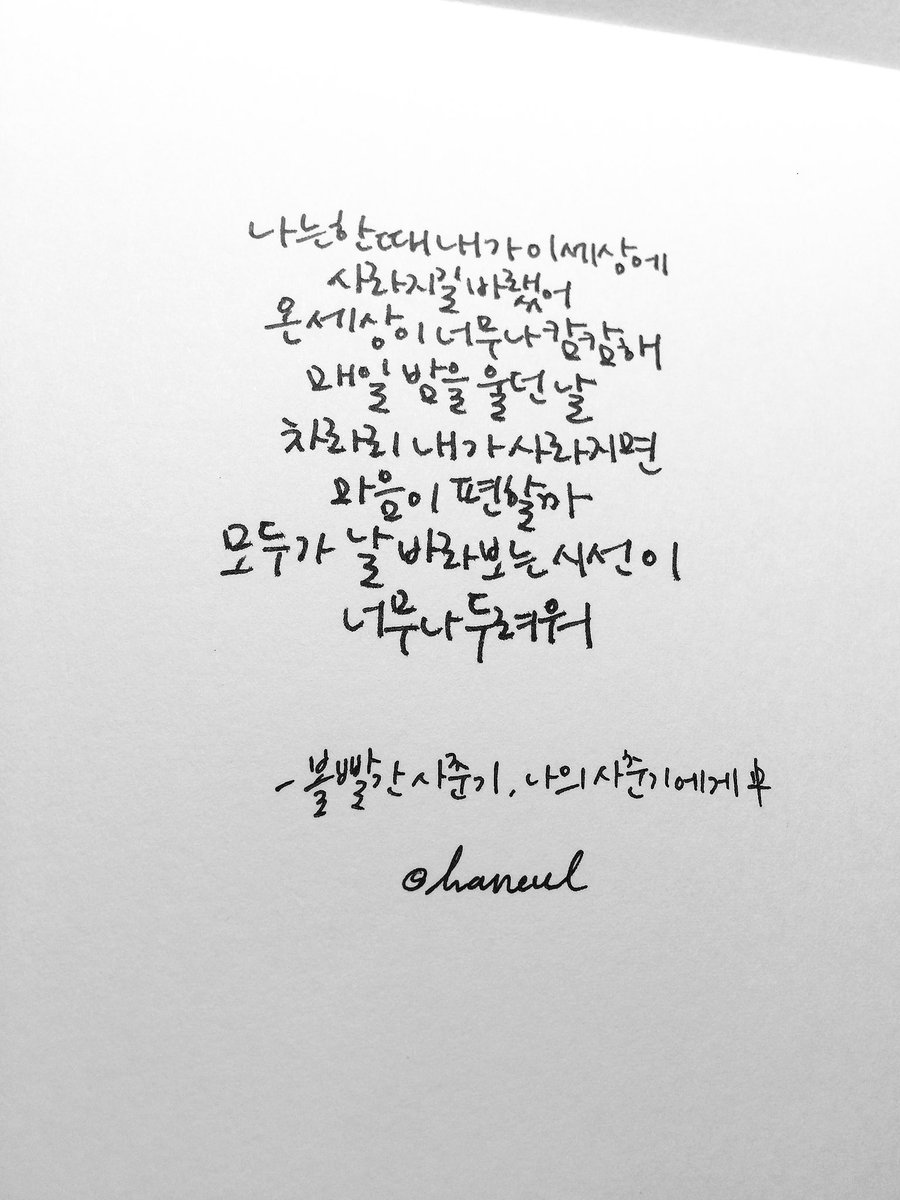 나는 한때 내가 이 세상에
사라지길 바랬어
온 세상이 너무나 캄캄해
매일 밤을 울던 날
차라리 내가 사라지면
마음이 편할까
모두가 날 바라보는 시선이
너무나 두려워
- 볼빨간사춘기, 나의 사춘기에게 中
@haneul